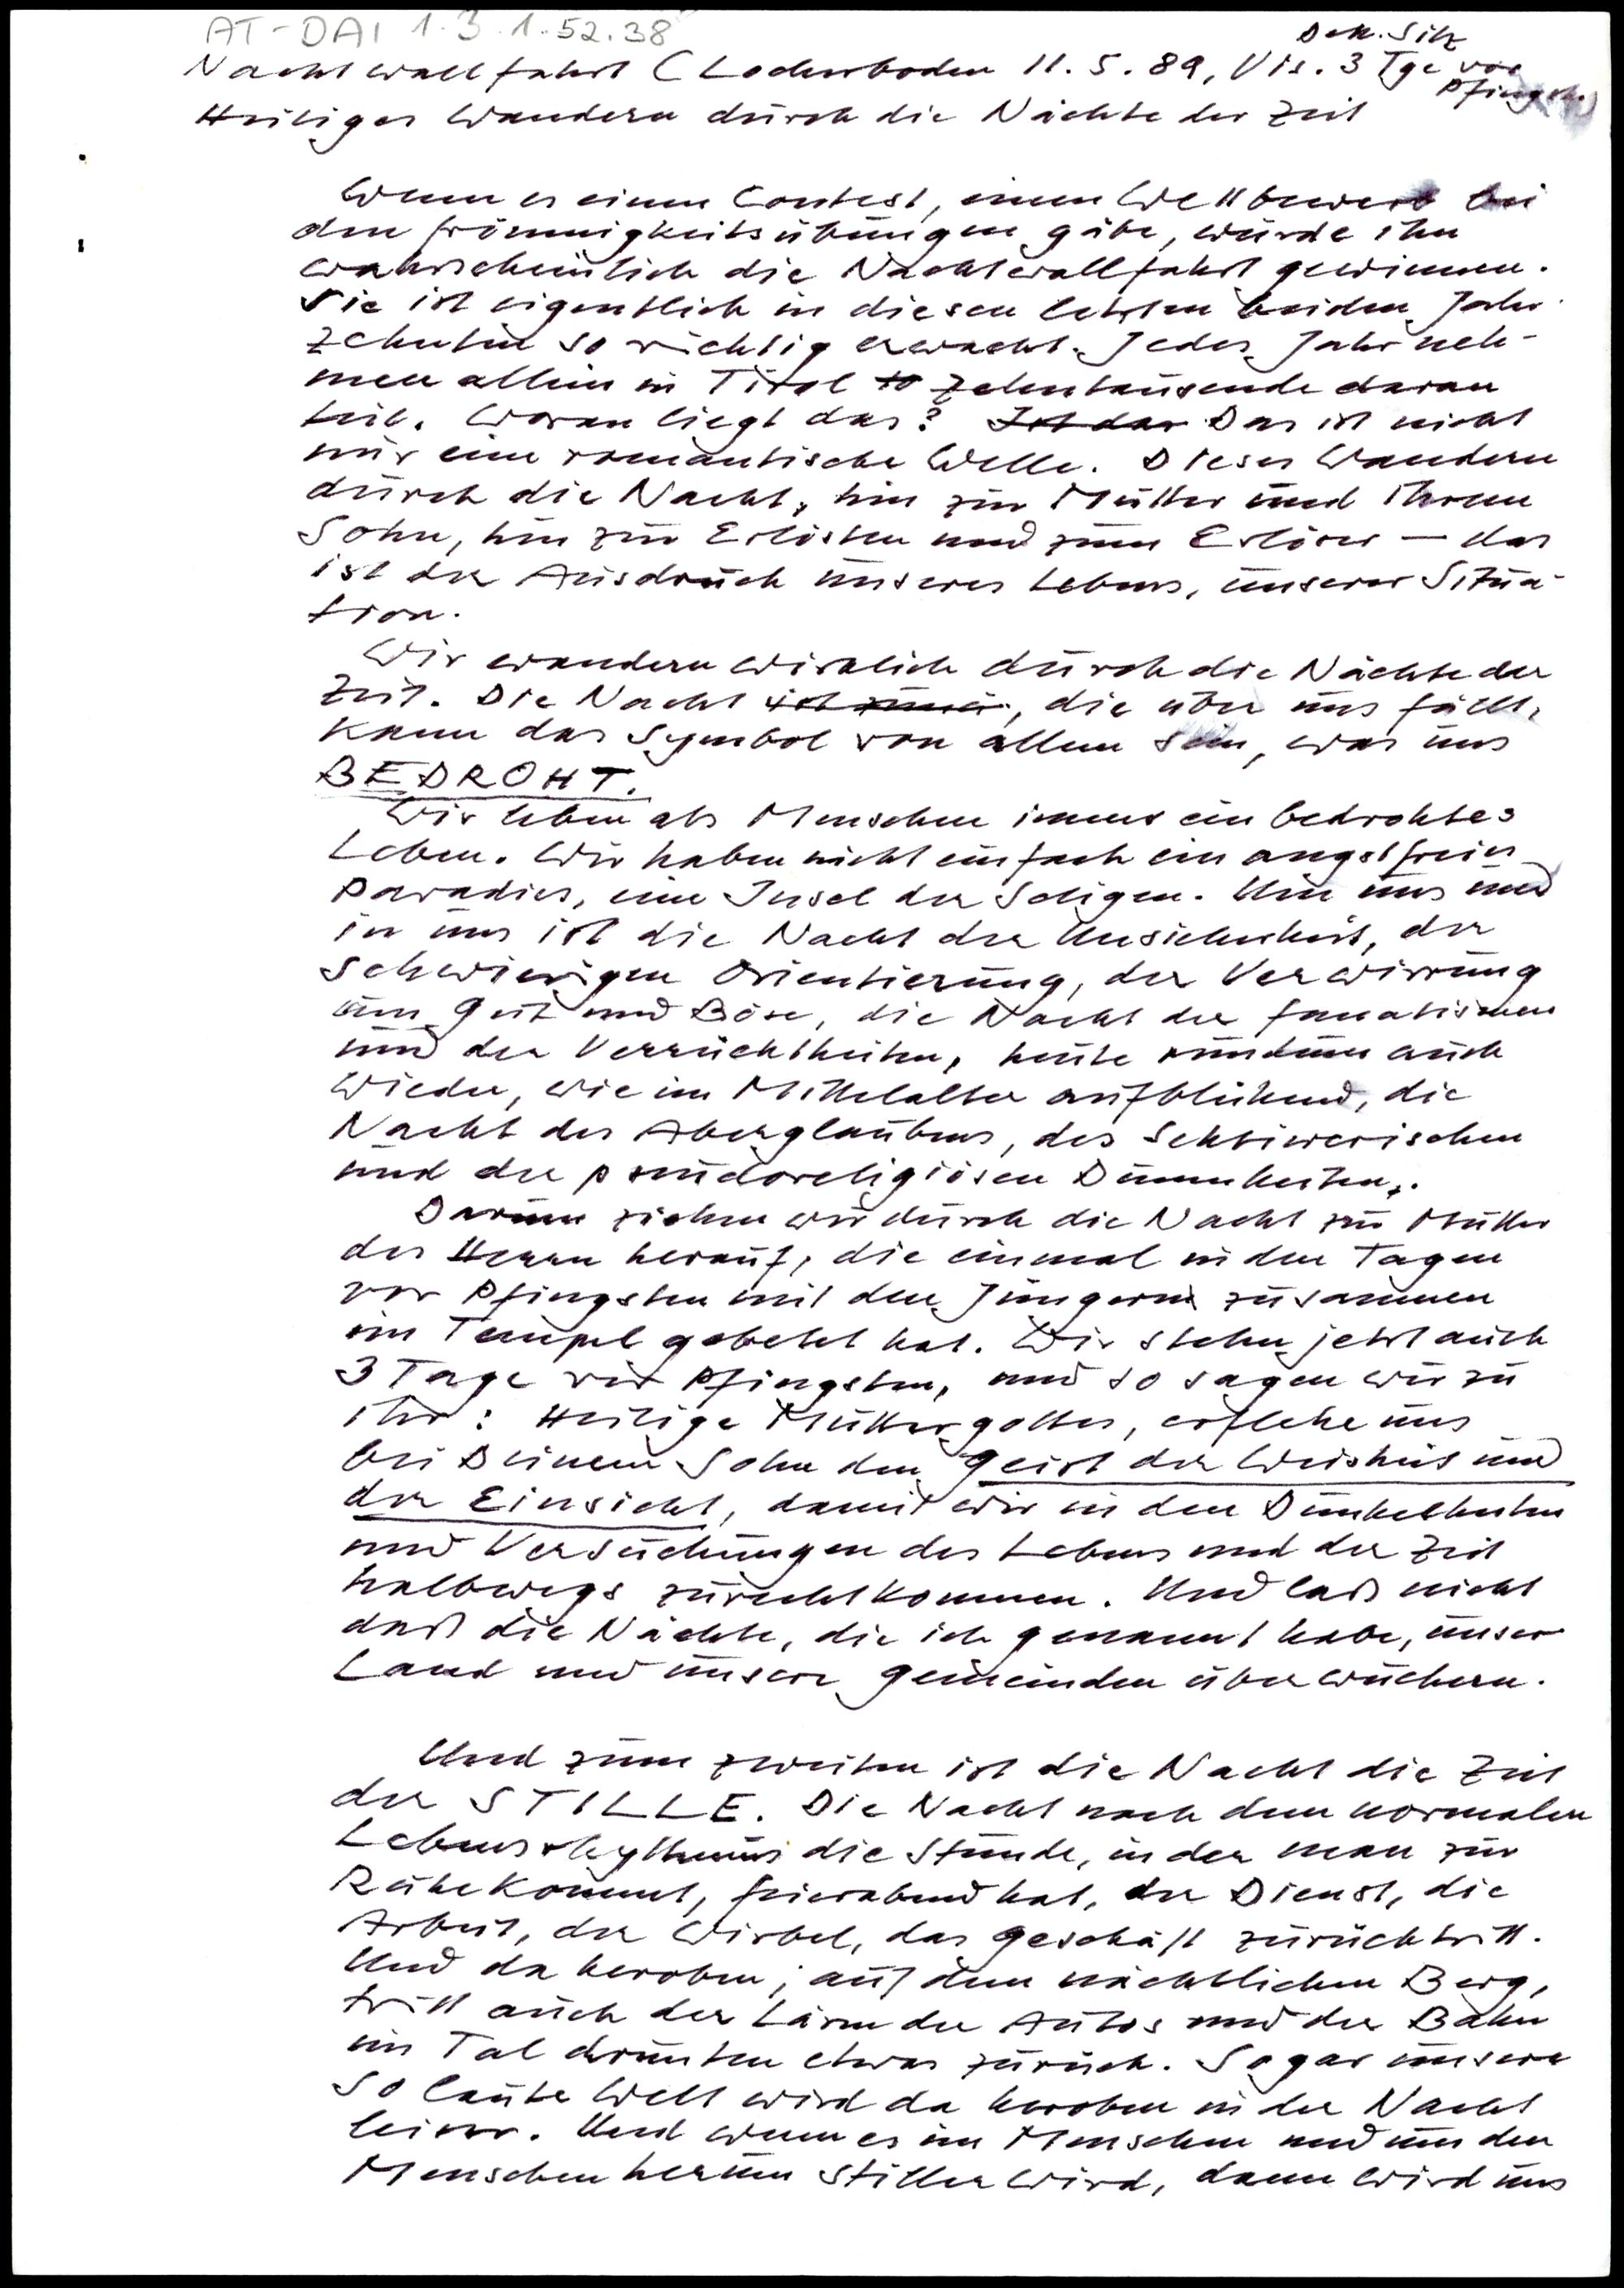 AT-DAI 1.3.1.52.38
Dek. Silz
Nachtwallfahrt (Locherboden 11.5.89, Vis. 3 Tge vor
Pfingsten)
Heiliges Wandern durch die Nächte der Zeit
Wenn es einen Contest, einen Wettbewerb bei
den Frömmigkeitsübungen gäbe, würde ihn
wahrscheinlich die Nachtwallfahrt gewinnen.
Sie ist eigentlich in diesen letzten beiden Jahr-
zehnten so richtig erwacht. Jedes Jahr neh-
men allein in Tirol Zehntausende daran
teil. Woran liegt das? Ist das Das ist nicht
nur eine romantische Welle. Dieses Wandern
durch die Nacht, hin zur Mutter und ihrem
Sohn, hin zur Erlösten und zum Erlöser — das
ist der Ausdruck unseres Lebens, unserer Situa-
tion.
Wir wandern wirklich durch die Nächte der
Zeit. Die Nacht, die über uns fällt,
kann das Symbol von allem sein, was uns
BEDROHT.
Wir leben als Menschen immer ein bedrohtes
Leben. Wir haben nicht einfach ein angstfreies
Paradies, eine Insel der Seligen. Um uns und
in uns ist die Nacht der Unsicherheit, der
schwierigen Orientierung, der Verwirrung
um Gut und Böse, die Nacht der fanatischen
und der Verrücktheiten, heute rundum auch
wieder, wie im Mittelalter aufblühend, die
Nacht des Aberglaubens, des Sektiererischen
und der pseudoreligiösen Dummheiten.
Darum ziehen wir durch die Nacht zur Mutter
des Herrn herauf, die einmal in den Tagen
vor Pfingsten mit den Jüngern zusammen
im Tempel gebetet hat. Wir stehn jetzt auch
3 Tage vor Pfingsten, und so sagen wir zu
ihr: Heilige Muttergottes, erflehe uns
bei Deinem Sohn den Geist der Weisheit und
der Einsicht, damit wir in den Dunkelheiten
und Versuchungen des Lebens und der Zeit
halbwegs zurechtkommen. Und laß nicht
daß die Nächte, die ich genannt habe, unser
Land und unsere Gemeinden überwuchern.
Und zum zweiten ist die Nacht die Zeit
der STILLE. Die Nacht nach dem normalen
Lebensrhythmus die Stunde, in der man zur
Ruhe kommt, Feierabend hat, der Dienst, die
Arbeit, der Wirbel, das Geschäft zurücktritt.
Und da heroben, auf dem nächtlichen Berg,
tritt auch der Lärm der Autos und der Bahn
im Tal drunten etwas zurück. Sogar unsere
so laute Welt wird da heroben in der Nacht
leiser. Und wenn es im Menschen und um den
Menschen herum stiller wird, dann wird uns